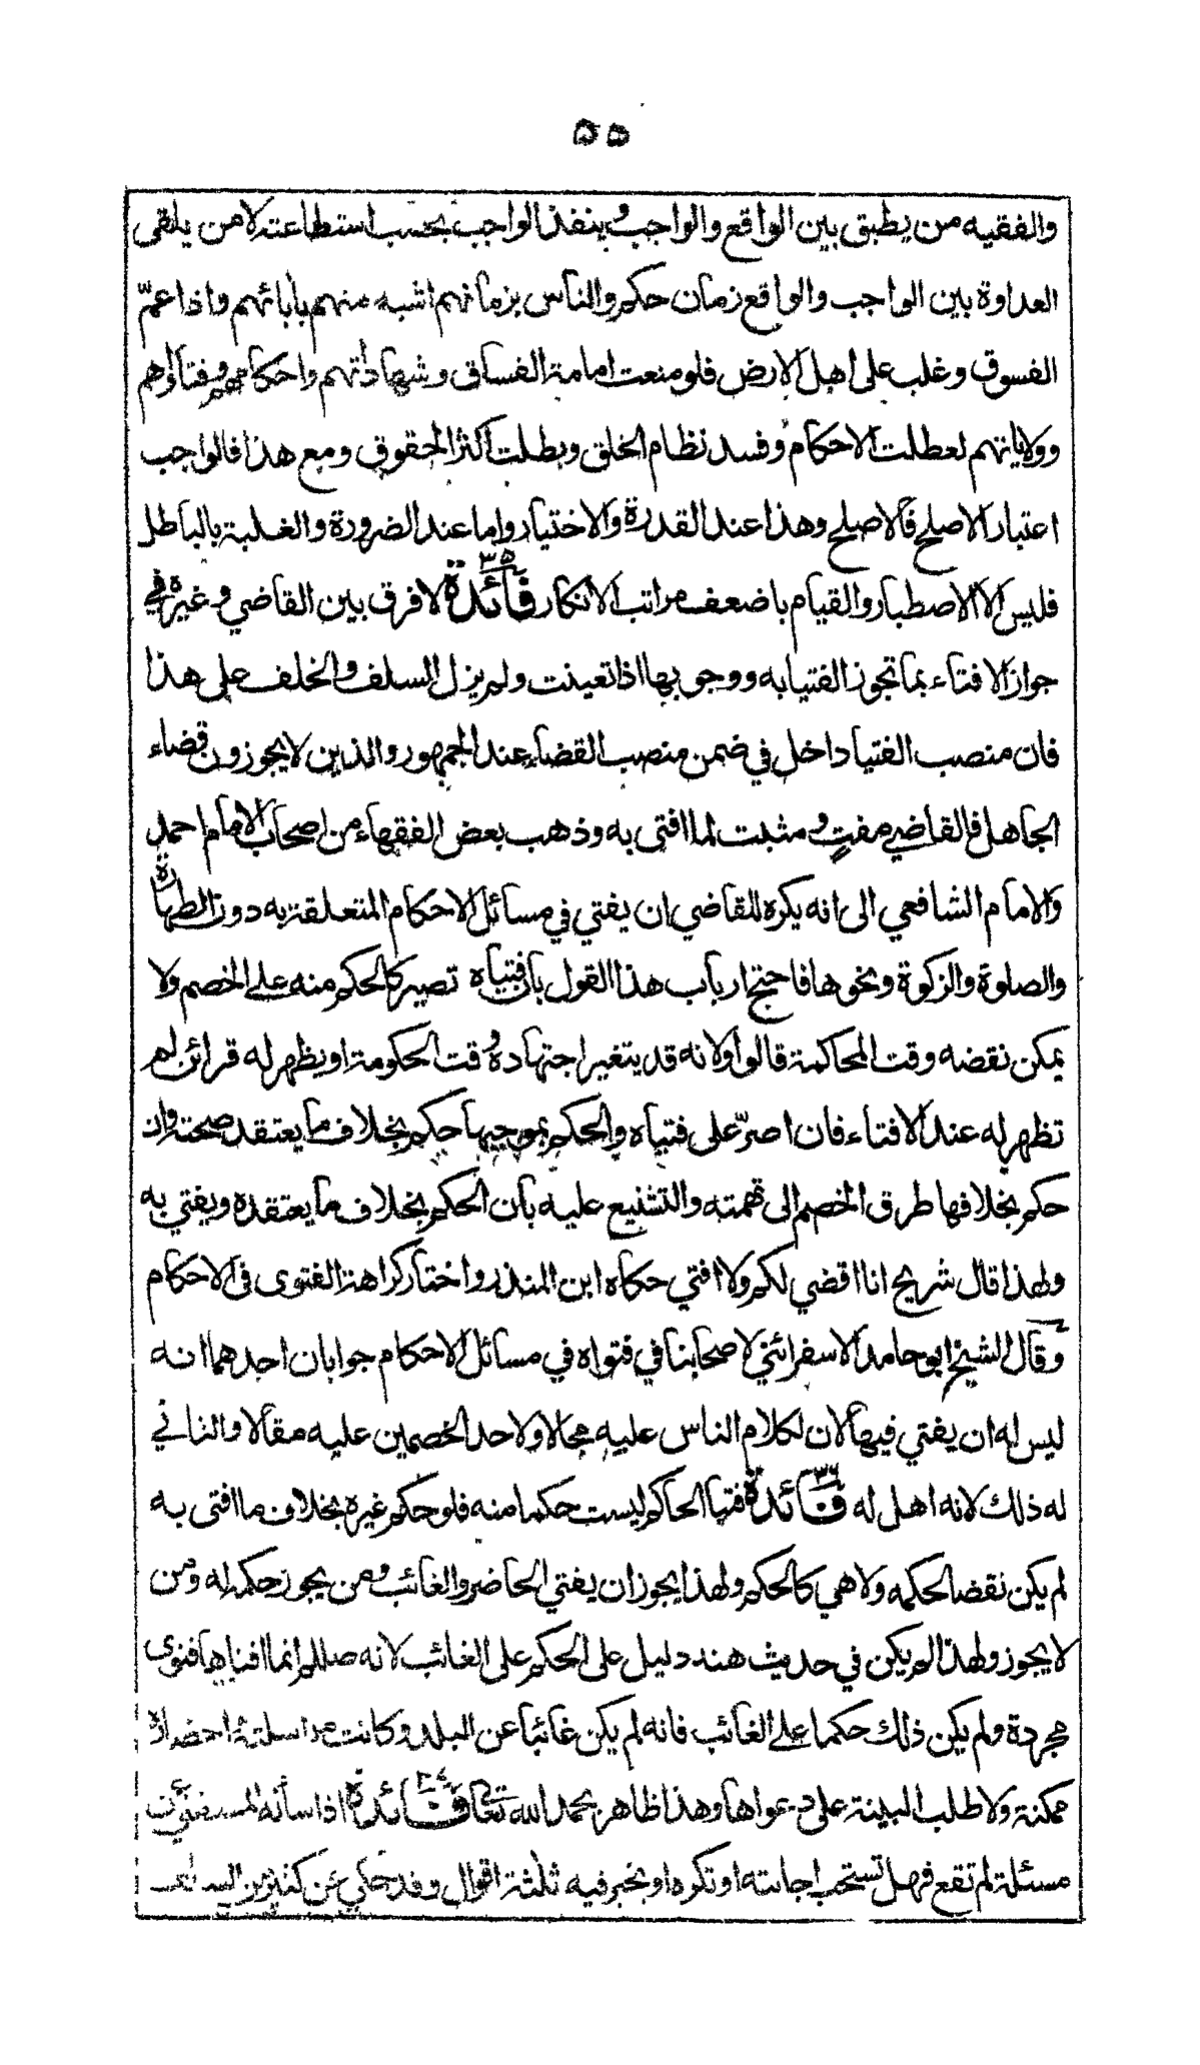 ٥٥
والفقيه من يطبق بين الواقع والواجب وينفذ الواجب بحسب استطاعته لا من يلقى
العداوة بين الواجب والواقع زمان حكم والناس بزمانهم اشبه منهم بآبائهم واذا عمّ
الفسوق وغلب على اهل الارض فلو منعت امامة الفساق وشهاداتهم واحكامهم وفتاواهم
وولاياتهم لعطلت الاحكام وفسد نظام الخلق وبطلت اكثر الحقوق ومع هذا فالواجب
اعتبار الاصلح فالاصلح وهذا عند القدرة والاختيار واما عند الضرورة والغلبة بالباطل
فليس الا الاصطبار والقيام باضعف مراتب الانكار فائدة ٣٥ لا فرق بين القاضي وغيره في
جواز الافتاء بما تجوز الفتيا به ووجوبها اذا تعينت ولم يزل السلف والخلف على هذا
فان منصب الفتيا داخل في ضمن منصب القضاء عند الجمهور والذين لا يجوزون قضاء
الجاهل فالقاضي مفتٍ ومثبت لما افتى به وذهب بعض الفقهاء من اصحاب الامام احمد
والامام الشافعي الى انه يكره للقاضي ان يفتي في مسائل الاحكام المتعلقة به دون الطهارة
والصلوة والزكوة ونحوها فاحتج ارباب هذا القول بان فتياه تصير كالحكم منه على الخصم ولا
يمكن نقضه وقت المحاكمة قالوا ولانه قد يتغير اجتهاده وقت الحكومة او يظهر له قرائن لم
تظهر له عند الافتاء فان اصرّ على فتياه والحكم بموجبها حكم بخلاف ما يعتقد صحته وان
حكم بخلافها طرق الخصم الى تهمته والتشنيع عليه بان الحكم بخلاف ما يعتقده ويفتي به
ولهذا قال شريح انا اقضي لكم ولا افتي حكاه ابن المنذر واختار كراهة الفتوى في الاحكام
وقال الشيخ ابو حامد الاسفرائني لاصحابنا في فتواه في مسائل الاحكام جوابان احدهما انه
ليس له ان يفتي فيها لان لكلام الناس عليه مجالا ولاحد الخصمين عليه مقالا والثاني
له ذلك لانه اهل له فائدة ٣٦ فتيا الحاكم ليست حكما منه فلو حكم غيره بخلاف ما افتى به
لم يكن نقضا لحكمه ولا هي كالحكم ولهذا يجوز ان يفتي الحاضر والغائب ومن يجوز حكمه له ومن
لا يجوز ولهذا لم يكن في حديث هند دليل على الحكم على الغائب لانه صللم انما افتاها فتوى
مجردة ولم يكن ذلك حكما على الغائب فانه لم يكن غائبا عن البلد وكانت مراسلته واحضاره
ممكنة ولا طلب البينة على دعواها وهذا ظاهر بحمد الله تعالى فائدة اذا سأله المستفتي عن
مسئلة لم تقع فهل تستحب اجابته او تكره او يخير فيه ثلثة اقوال وقد حكي عن كثير من السلف